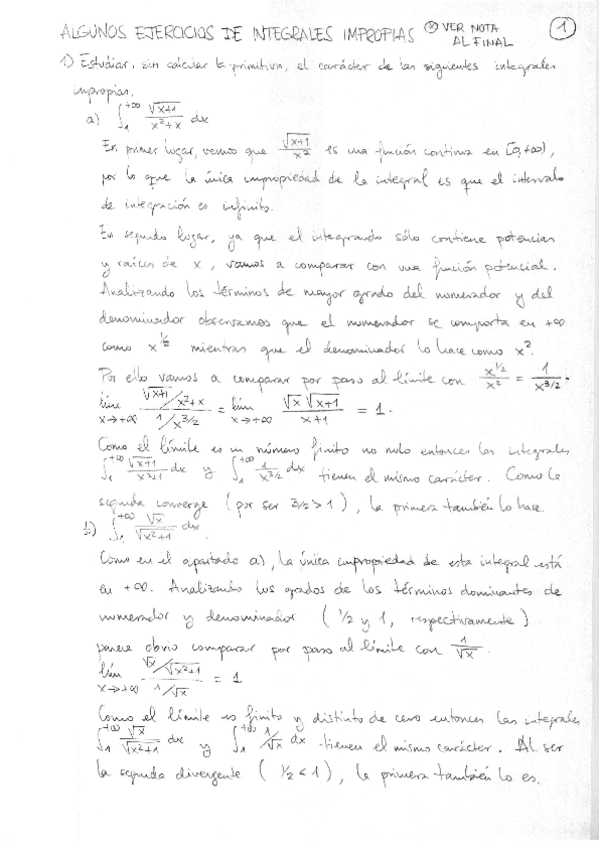 ALGUNOS EJERCICIOS DE INTEGRALES IMPROPIAS (*) VER NOTA AL FINAL 1
1) Estudiar, sin calcular la primitiva, el carácter de las siguientes integrales
impropias.
a) ∫_1^{+∞} √(x+1)/(x²+x) dx
En primer lugar, vemos que √(x+1)/x² es una función continua en [0,+∞),
por lo que la única impropiedad de la integral es que el intervalo
de integración es infinito.
En segundo lugar, ya que el integrando sólo contiene potencias
y raíces de x, vamos a comparar con una función potencial.
Analizando los términos de mayor grado del numerador y del
denominador observamos que el numerador se comporta en +∞
como x^{1/2} mientras que el denominador lo hace como x².
Por ello vamos a comparar por paso al límite con x^{1/2}/x² = 1/x^{3/2}.
lím_{x→+∞} (√(x+1)/(x²+x))/(1/x^{3/2}) = lím_{x→+∞} √x √(x+1)/(x+1) = 1.
Como el límite es un número finito no nulo entonces las integrales
∫_1^{+∞} √(x+1)/(x²+1) dx y ∫_1^{+∞} 1/x^{3/2} dx tienen el mismo carácter. Como la
segunda converge (por ser 3/2>1), la primera también lo hace.
b) ∫_1^{+∞} √x/√(x²+1) dx.
Como en el apartado a), la única impropiedad de esta integral está
en +∞. Analizando los grados de los términos dominantes de
numerador y denominador (1/2 y 1, respectivamente)
parece obvio comparar por paso al límite con 1/√x.
lím_{x→+∞} (√x/√(x²+1))/(1/√x) = 1
Como el límite es finito y distinto de cero entonces las integrales
∫_1^{+∞} √x/√(x²+1) dx y ∫_1^{+∞} 1/√x dx tienen el mismo carácter. Al ser
la segunda divergente (1/2<1), la primera también lo es.